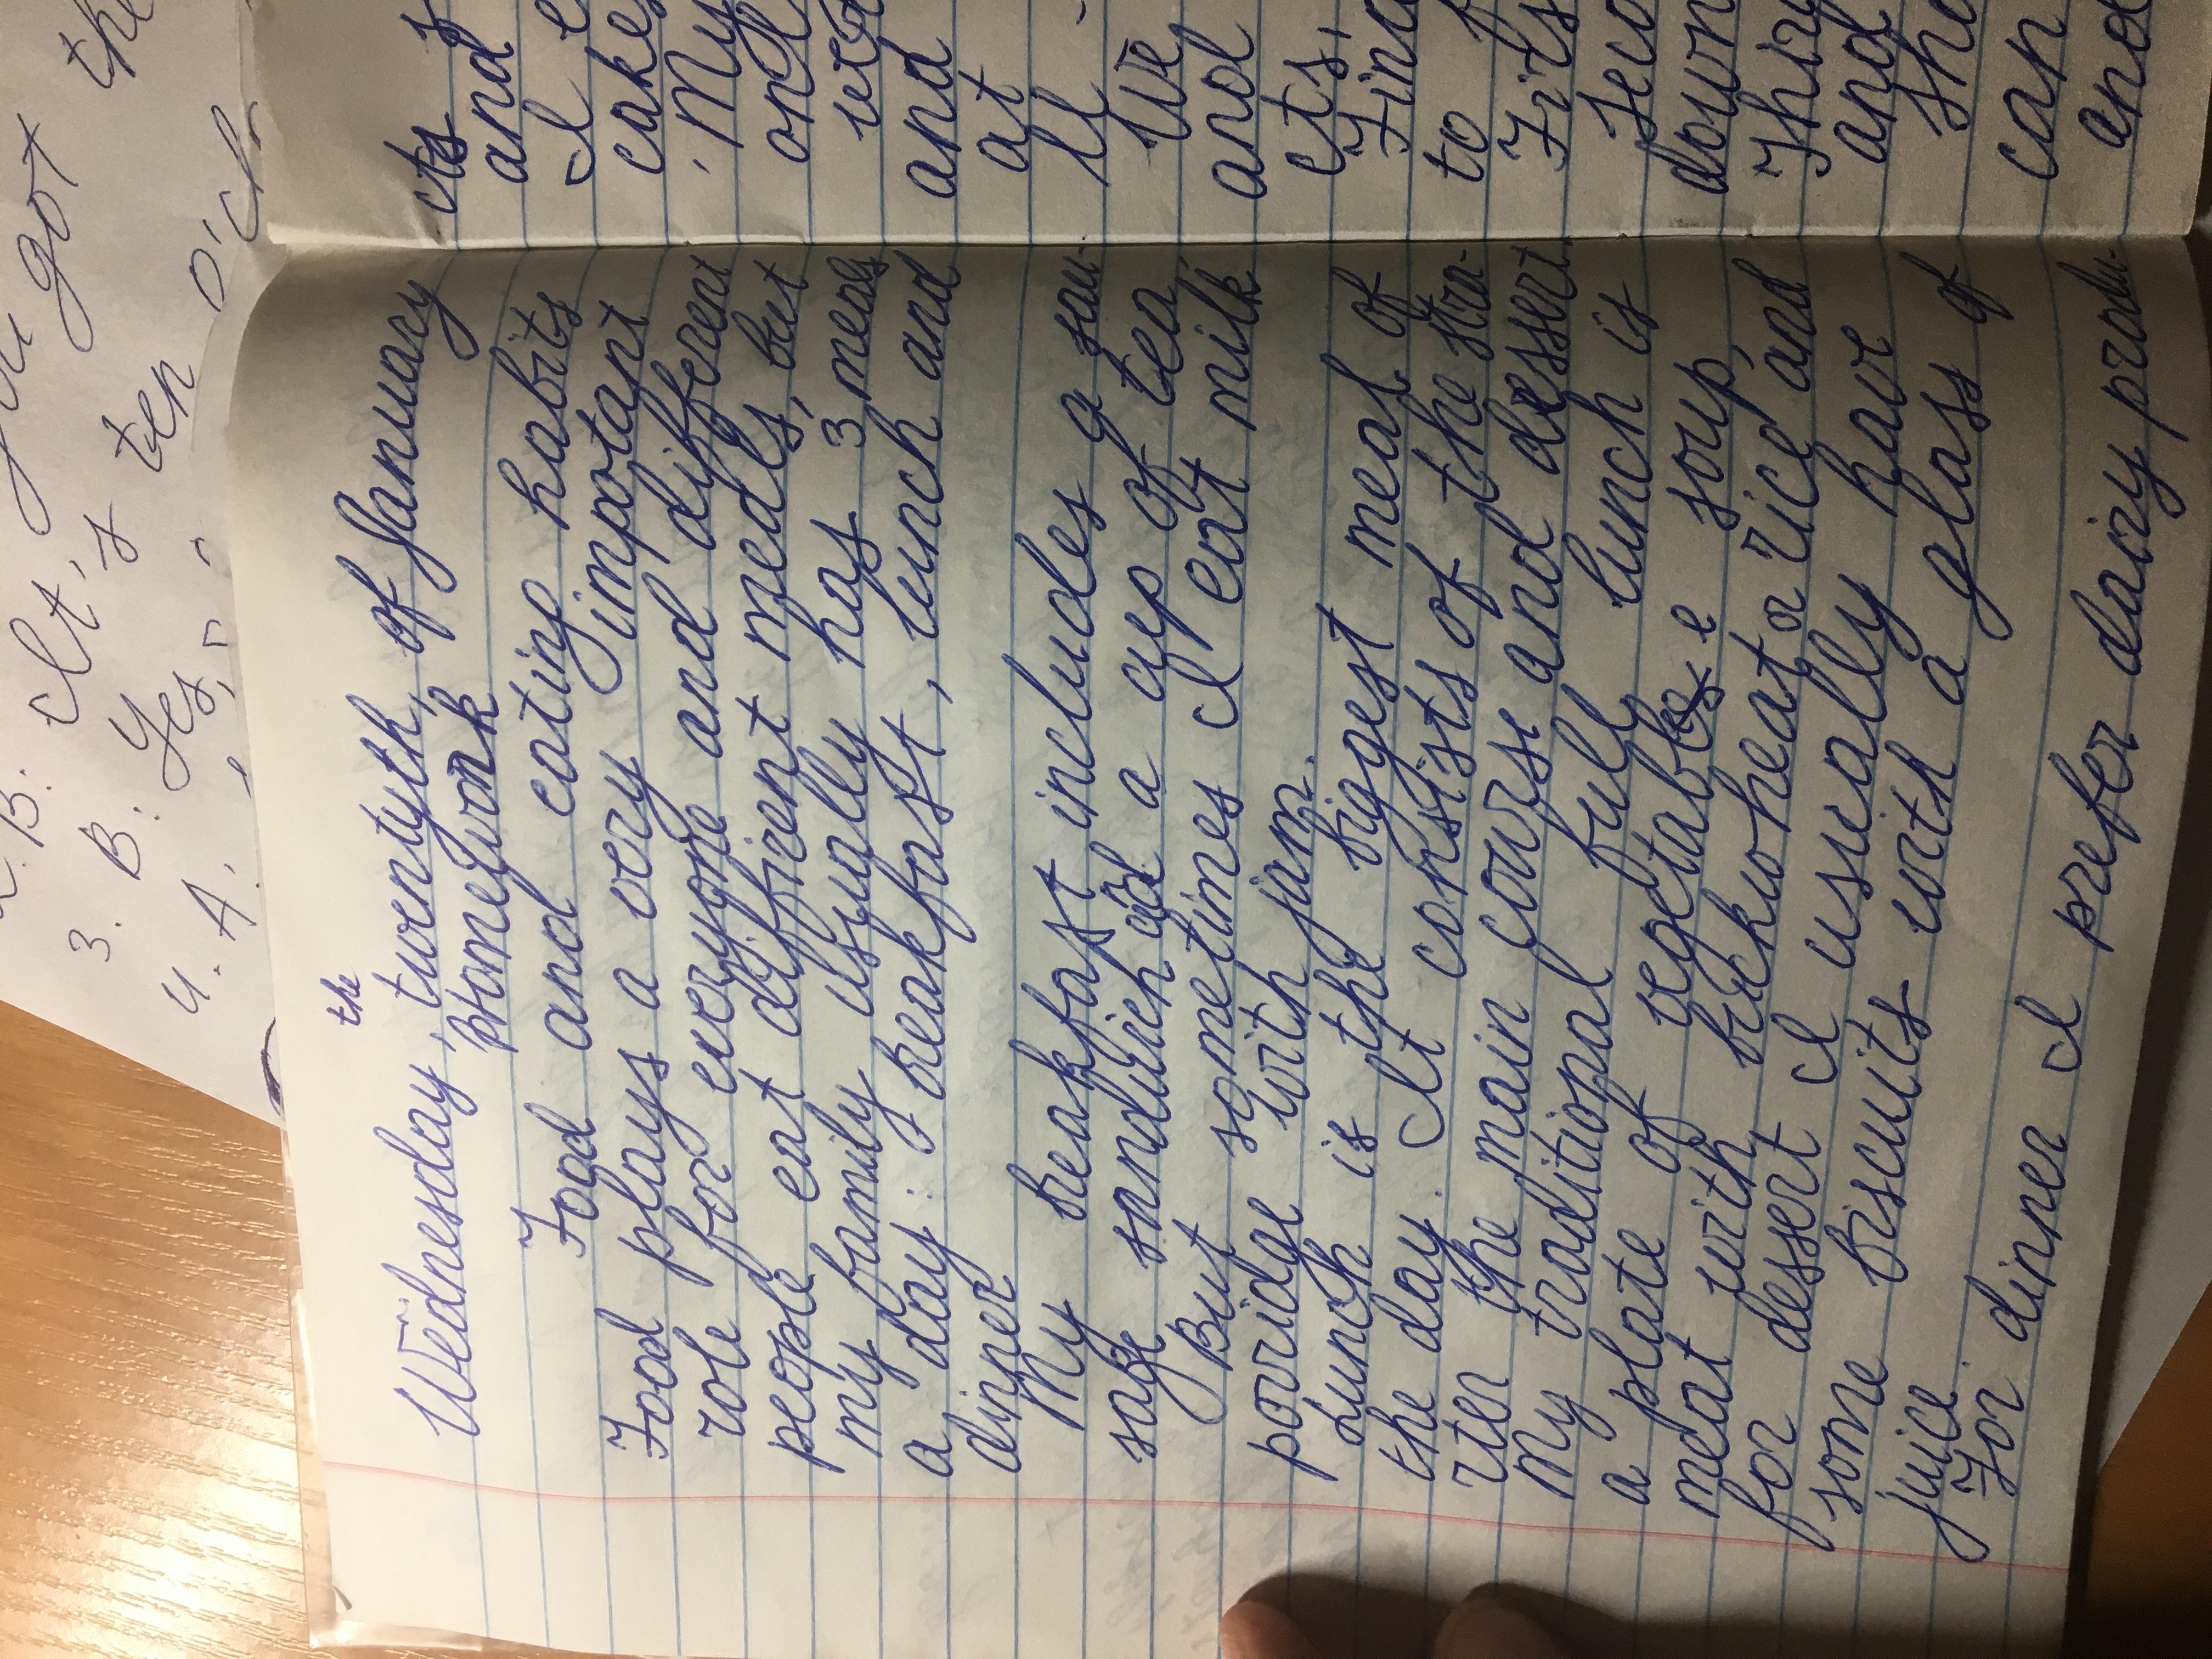 the
Wednesday, twentyth, of January
Homework
Food and eating habits
Food plays a very impotant
role for everyone and different
people eat diffirent meals, but
my family usyally has 3 meals
a day: breakfast, lunch and
dinner
My breakfast includes a sau-
sage sandwich and a cup of tea.
But sometimes I eat milk
porridge with jam.
Lunch is the bigest meal of
the day. It consists of the sta-
rter the main course and dessert.
My traditional full lunch is
a plate of vegetable soup,
meat with buckwheat or rice and
for dessert I usially have
some biscuits with a glass of
juice.
For dinner I prefer dairy produ-
cts
and
I
cake
My
and
at
We
and
cts,
to
down
and
can
and
got the
B: It,s ten o'cl
3. B: Yes,
4. A: